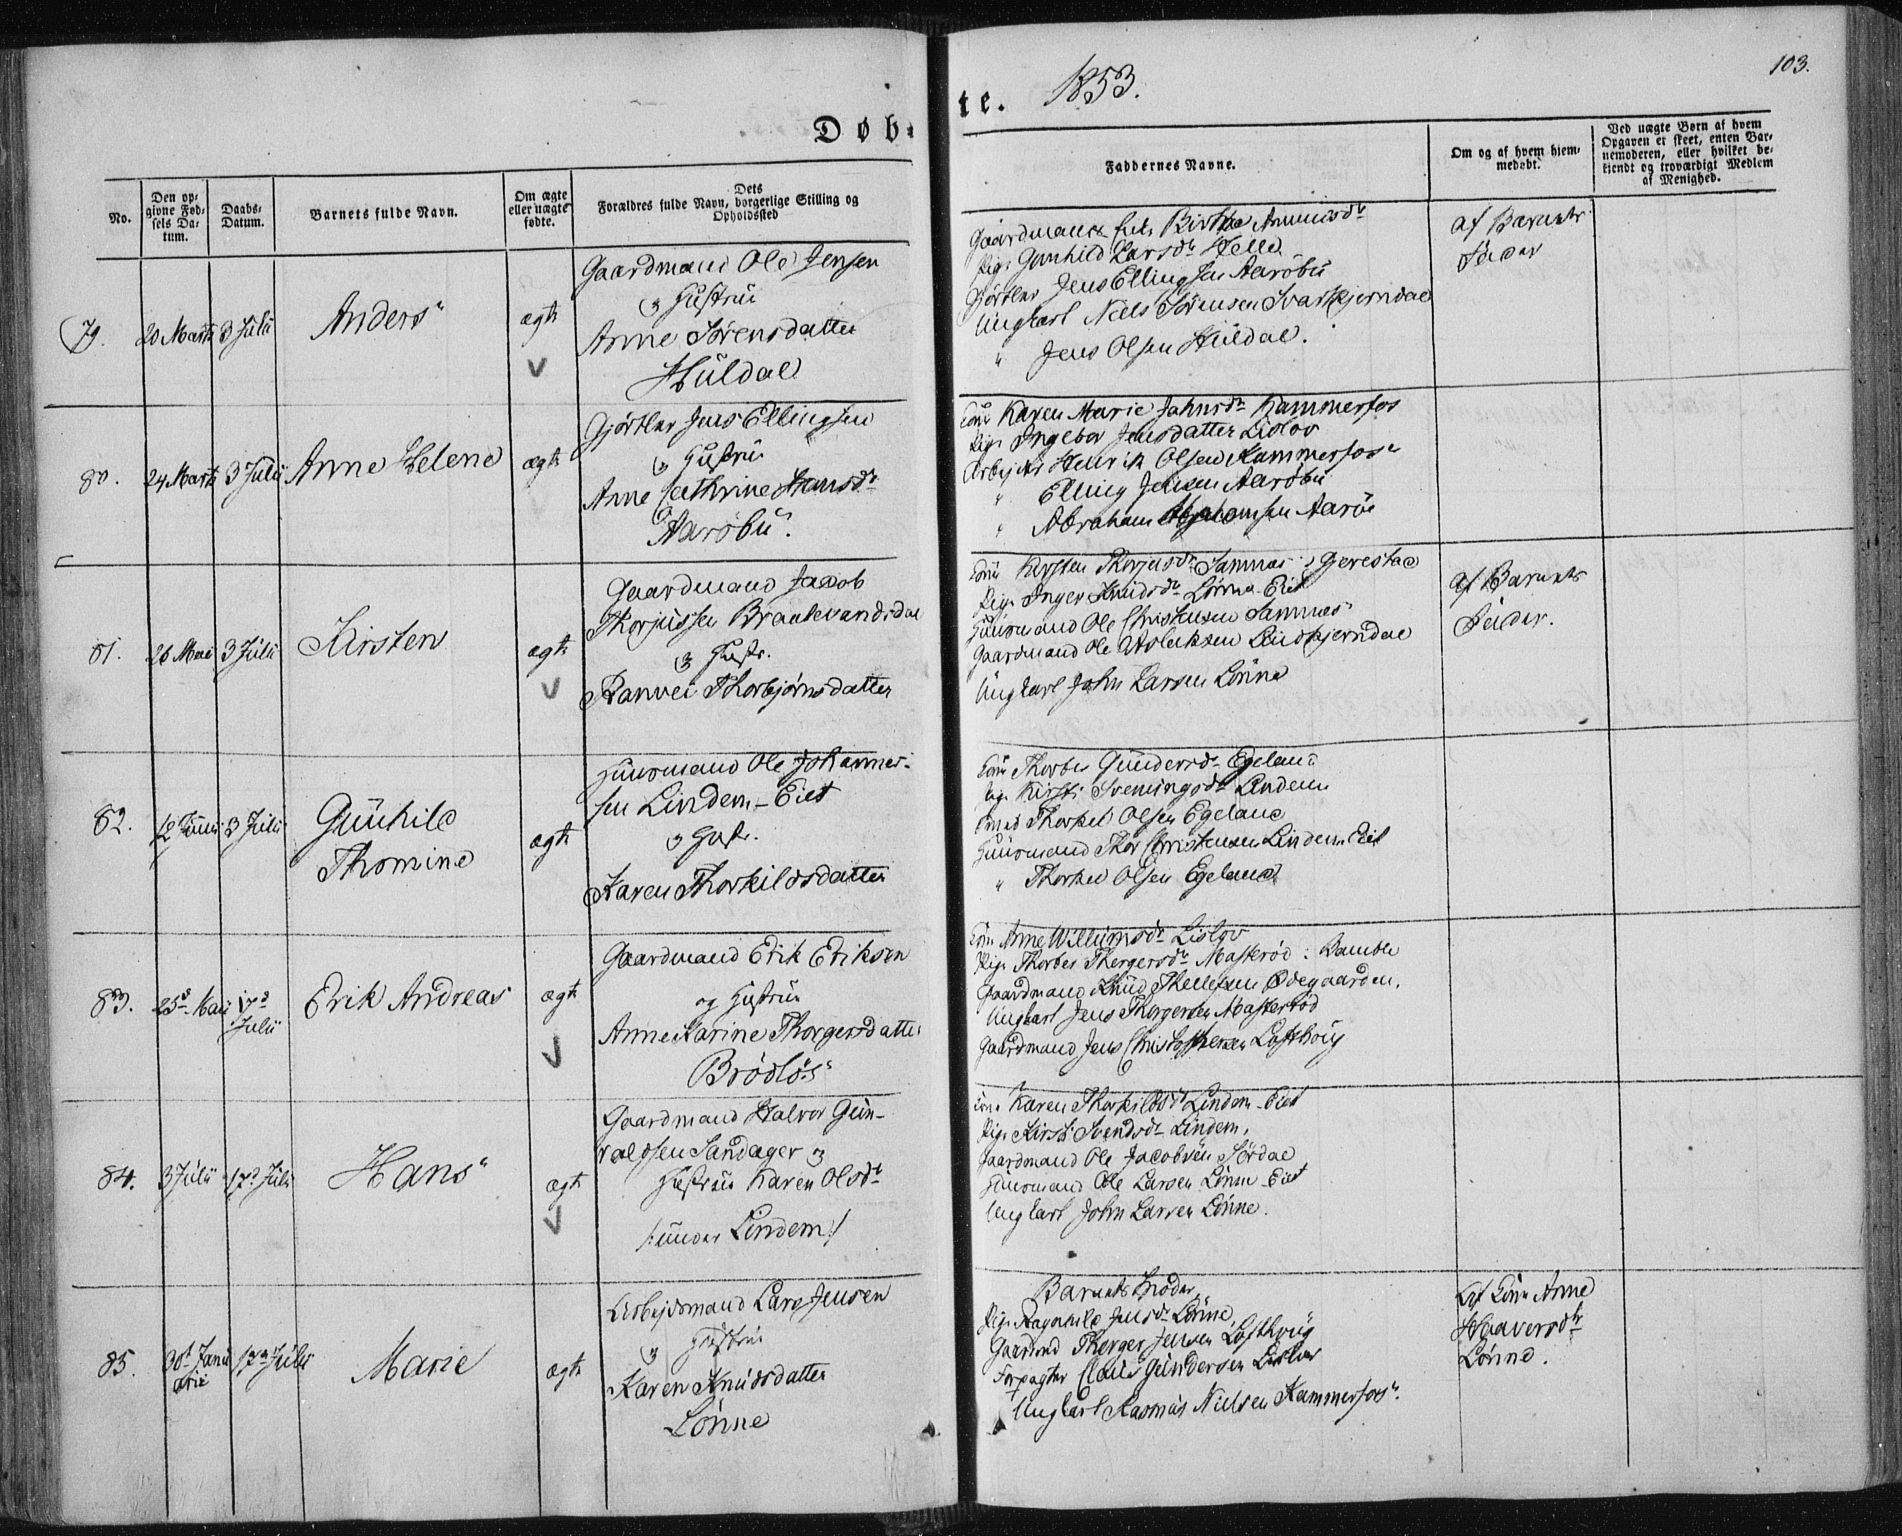 103.
1853.
Døb-
te.
No.
Den op-
givne Fød-
sels Da-
tum.
Daabs-
Datum.
Barnets fulde Navn.
Om ægte
eller uægte
fødte.
Dets
Forældres fulde Navn, borgerlige Stilling og
Opholdssted
Faddernes Navne.
Om og af hvem hjem-
medøbt.
Ved uægte Børn af hvem
Opgaven er skeet, enten Bar-
nemoderen, eller hvilket be-
kjendt og troværdigt Medlem
af Menighed.
79.
20 Marts
3 Julii
Anders
ægte
Gaardmand Ole Jensen
og Hustrue
Anne Sørensdatter
Huldal
Gaardmands Birthe
Pige Gunhild Larsdr Helle
Gjørtler Jens Ellingsen Aarøbu
Ungkarl Niels Sørensen Svartkjerndal
" Jens Olsen Huldal.
af Barnets
Fader
80.
24 Marts
3 Julii
Anne Helene
ægte
Gjørtler Jens Ellingsen
og Hustrue
Anne Cathrine Hansdr
Aarøbu.
Kone Karen Marie Jahnsdr Kammerfos
Pige Ingebor Jensdatter Lislov
Arbejder Henrik Olsen Kammerfos
" Elling Jensen Aarøbu
" Abraham Abrahamsen Aarøe
81.
26 Mai
3 Julii
Kirsten
ægte
Gaardmand Jacob
Thorjussen Braatevandsdal
og Hustr.
Ranvei Thorbjørnsdatter
Kone Kirsten Thorjusdr Sannæs i Gjerestad
Pige Inger Knudsdr Lønne-Eiet
Huusmand Ole Christensen Sannæs
Gaardmand Ole Aslaksen Lindkjerndal
Ungkarl John Larsen Lønne
af Barnets
Fader.
82.
12 Junii
3 Julii
Gunhild
Thomine
ægte
Huusmand Ole Johannes-
sen Lindem-Eiet
og Hustr.
Karen Thorkildsdatter
Kone Thorber Gundersdr Egeland
Pige Kirsti Sveningsdr Lindem
Thorkel Olsen Egeland
Huusmand Thor Christensen Lindem Eiet
" Thorkel Olsen Egeland
83.
25de Mai
17de
Julii
Erik Andreas
ægte
Gaardmand Erik Eriksen
og Hustrue
Anne Karine Thorgersdatter
Brødløs
Kone Anne Willumsdr Lislov
Pige Thorber Thorgersdr Masterød i Bamble
Gaardmand Knud Thellefsen Ødegaarden.
Ungkarl Jens Thorgersen Masterød
Gaardmand Jens Christophersen Lofthoug
84.
3 Julii
17de Julii
Hans
ægte
Gaardmand Halvor Gun-
valdsen Sandager og
Hustrue Karen Olsdr
/: under Lindem :/
Kone Karen Thorkildsdr Lindem-Eiet
Pige Kirsti Svendsdr Lindem.
Gaardmand Ole Jacobsen Sørdal
Huusmand Ole Larsen Lønne-Eiet
Ungkarl John Larsen Lønne.
85.
30te Janu
arii
17de Julii
Marie
ægte
Arbejdsmand Lars Jensen
og Hustrue
Karen Knudsdatter
Lønne
Barnets Moder,
Pige Ragnhild Jensdr Lønne,
Gaardmd Thorger Jensen Lofthoug
Forpagter Claus Gundersen Lislov
Ungkarl Rasmus Nielsen Kammerfos.
Af Kone Anne
Haaversdtr
Lønne.